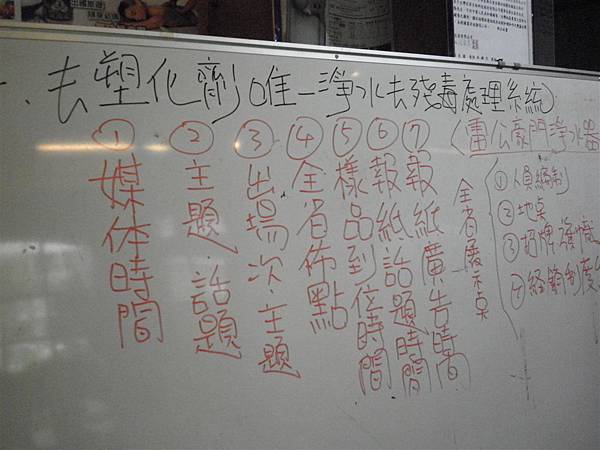 一、去塑化劑(唯一淨水去殘毒處理系統)
(雷公豪門淨水器
① 媒体時間
② 主題、話題
③ 出場次、主題
④ 全省佈點
⑤ 樣品到位時間
⑥ 報紙話題時間
⑦ 報紙廣告時間
全省展示桌
① 人員編制
② 地桌
③ 招牌、發
④ 經銷制度